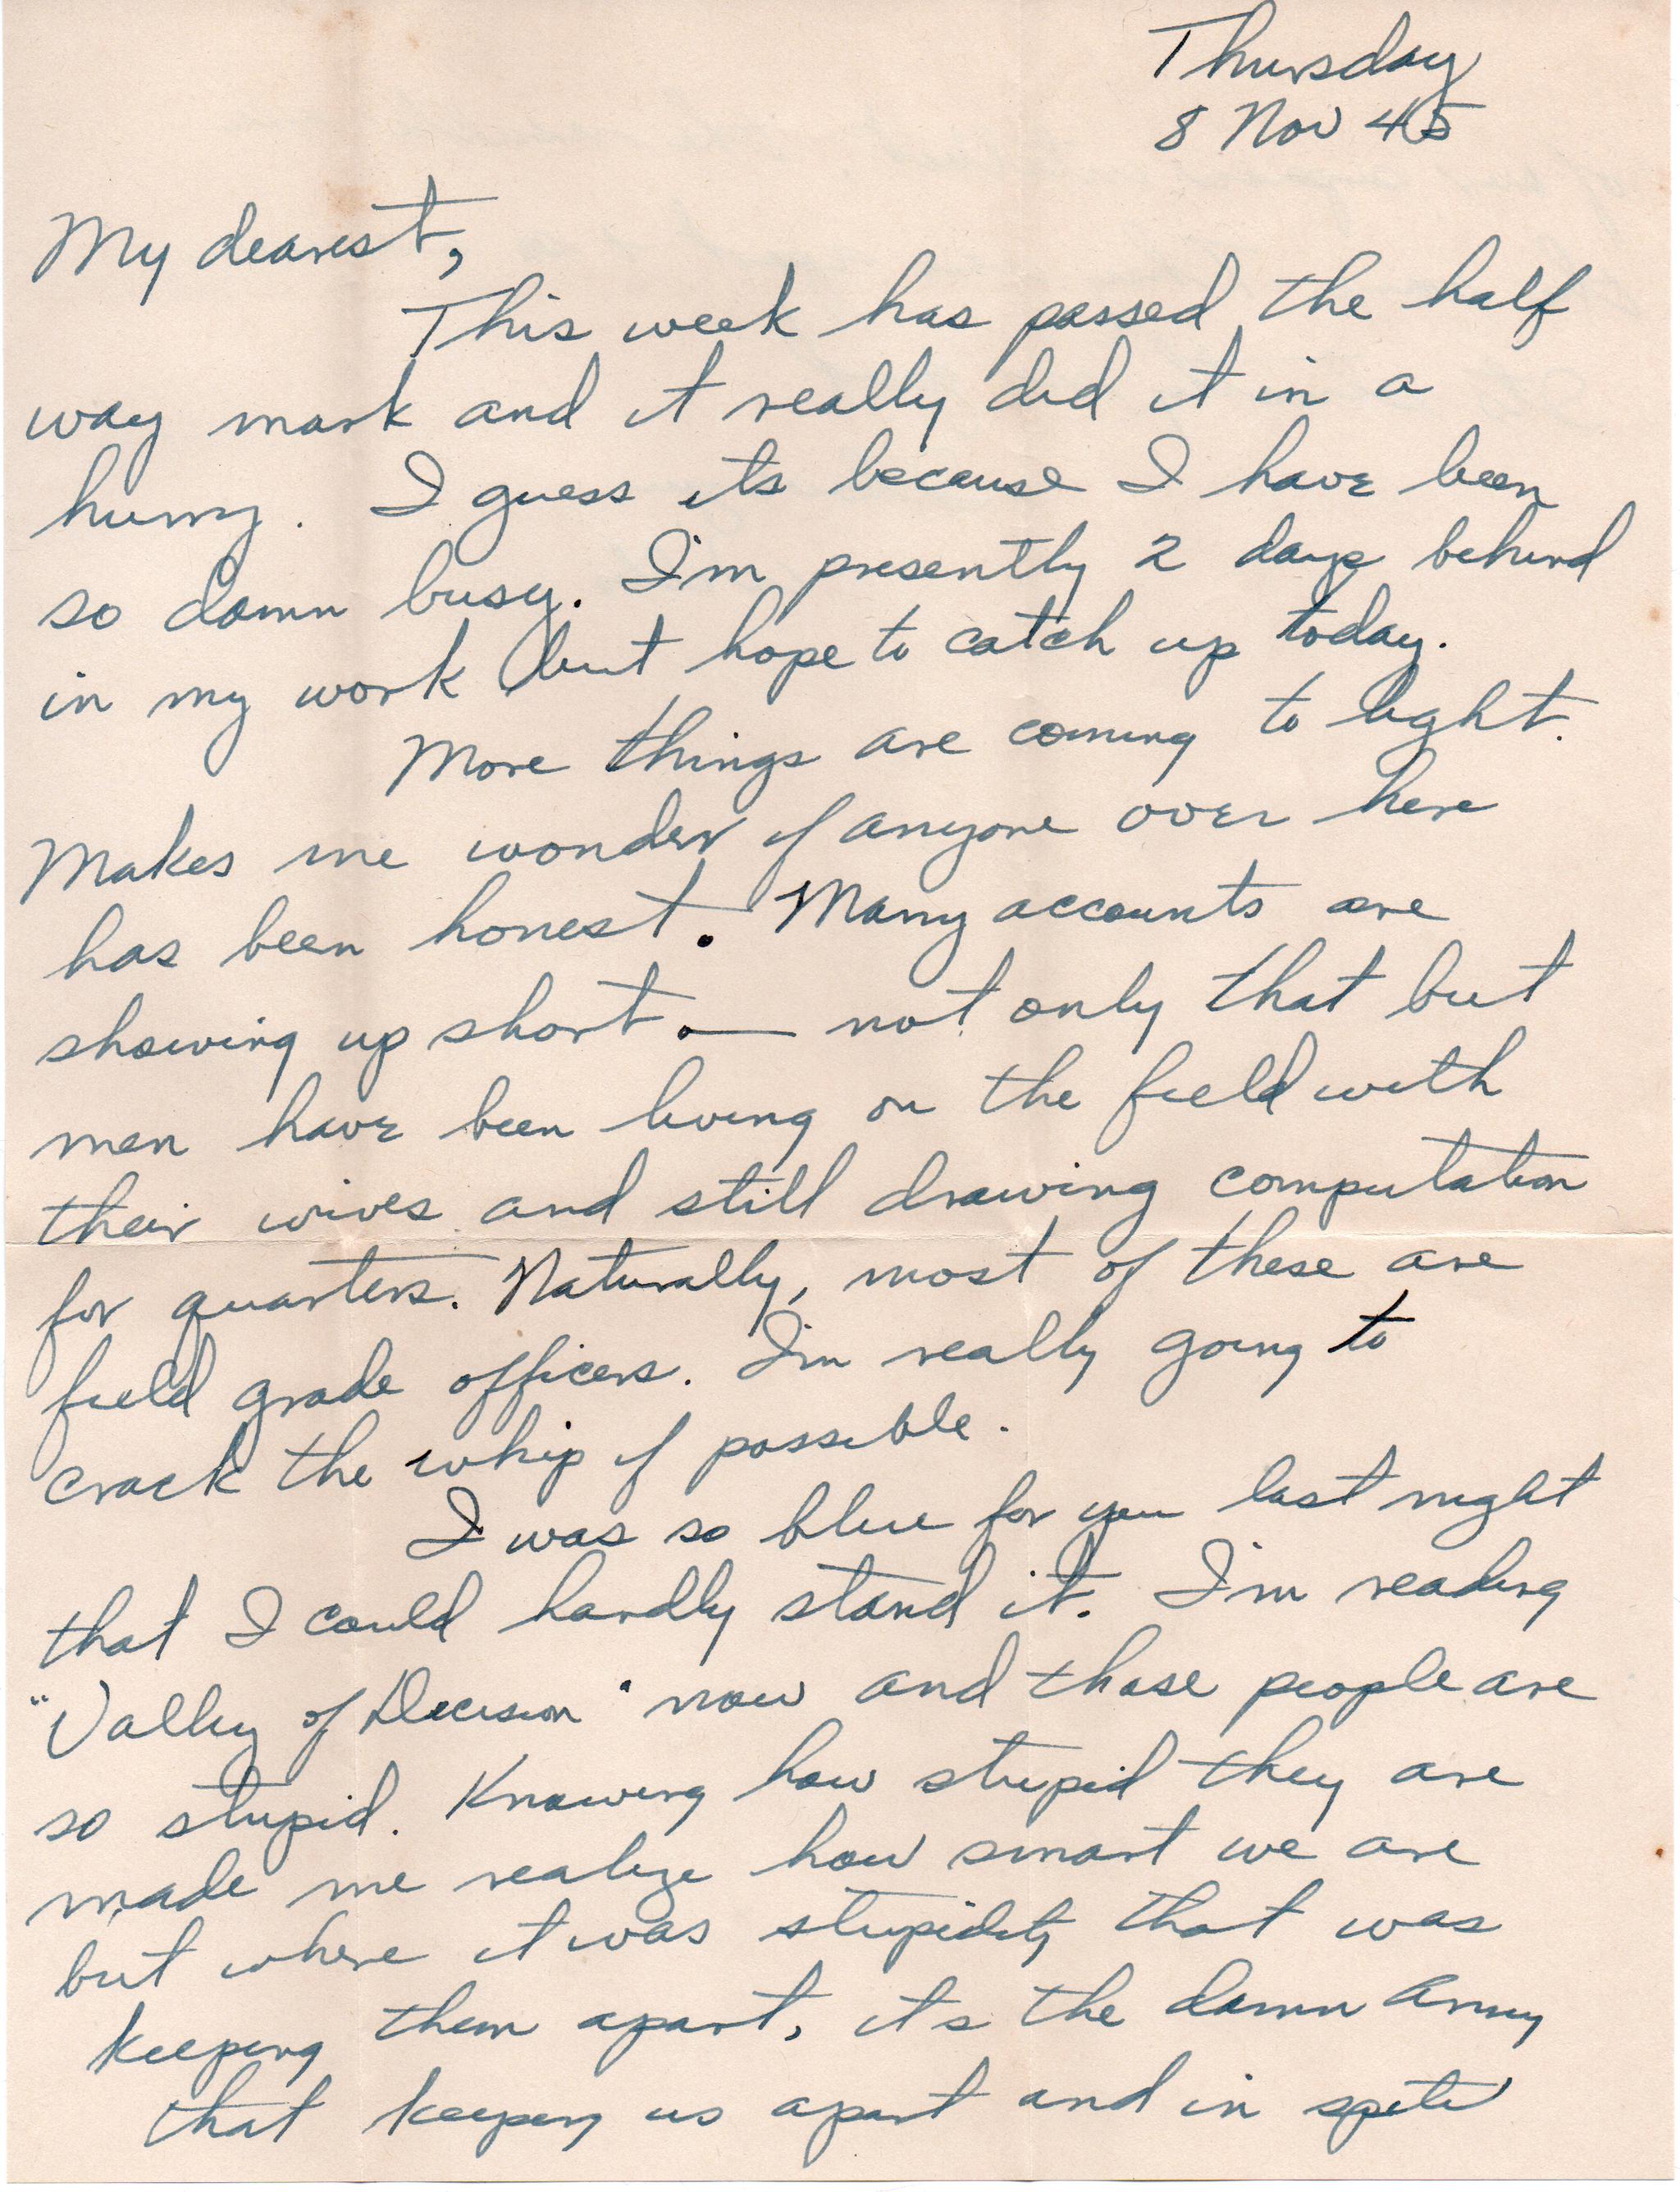 Thursday
8 Nov 45
My dearest,
This week has passed the half
way mark and it really did it in a
hurry. I guess its because I have been
so damn busy. I'm presently 2 days behind
in my work but hope to catch up today.
More things are coming to light.
Makes me wonder if anyone over here
has been honest. Many accounts are
showing up short. — not only that but
men have been living on the field with
their wives and still drawing computation
for quarters. Naturally, most of these are
field grade officers. I'm really going to
crack the whip if possible.
I was so blue for you last night
that I could hardly stand it. I'm reading
"Valley of Decision" now and those people are
so stupid. Knowing how stupid they are
made me realize how smart we are
but where it was stupidity that was
keeping them apart, its the damn Army
that keeping us apart and in spite